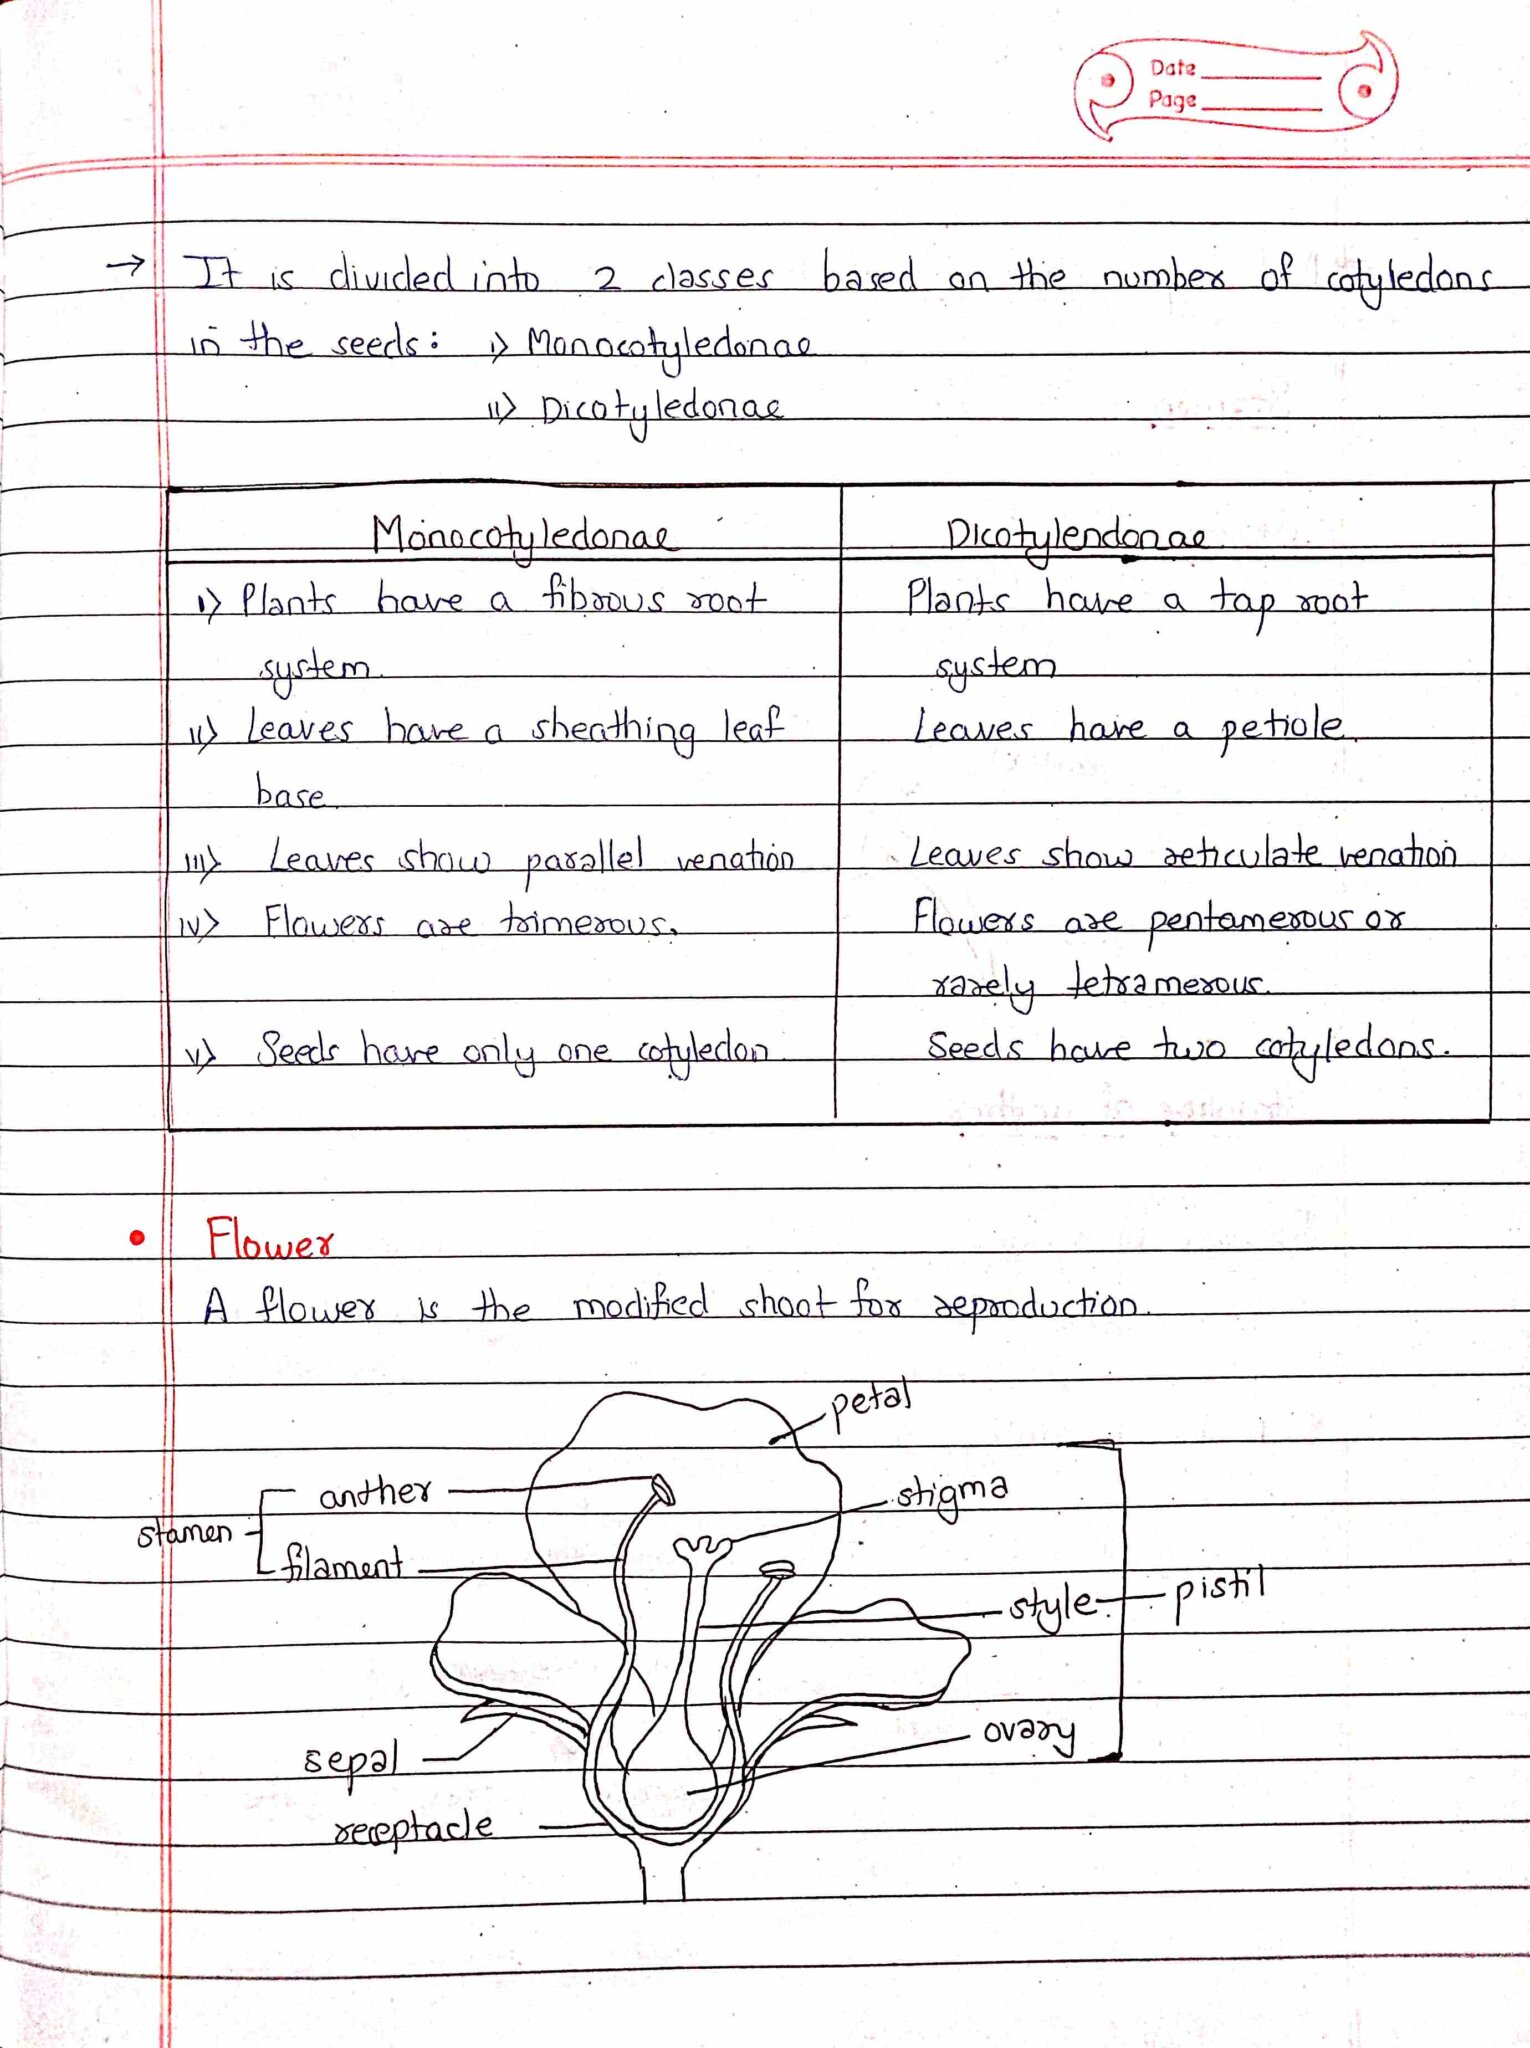 Date
Page
→ It is divided into 2 classes based on the number of cotyledons
in the seeds: i) Monocotyledonae
ii) Dicotyledonae
Monocotyledonae Dicotylendonae
i) Plants have a fibrous root Plants have a tap root
system. system
ii) Leaves have a sheathing leaf Leaves have a petiole.
base.
iii) Leaves show parallel venation Leaves show reticulate venation
iv) Flowers are trimerous. Flowers are pentamerous or
rarely tetramerous.
v) Seeds have only one cotyledon. Seeds have two cotyledons.
• Flower
A flower is the modified shoot for reproduction.
petal
anther stigma
stamen
filament
style pistil
ovary
sepal
receptacle